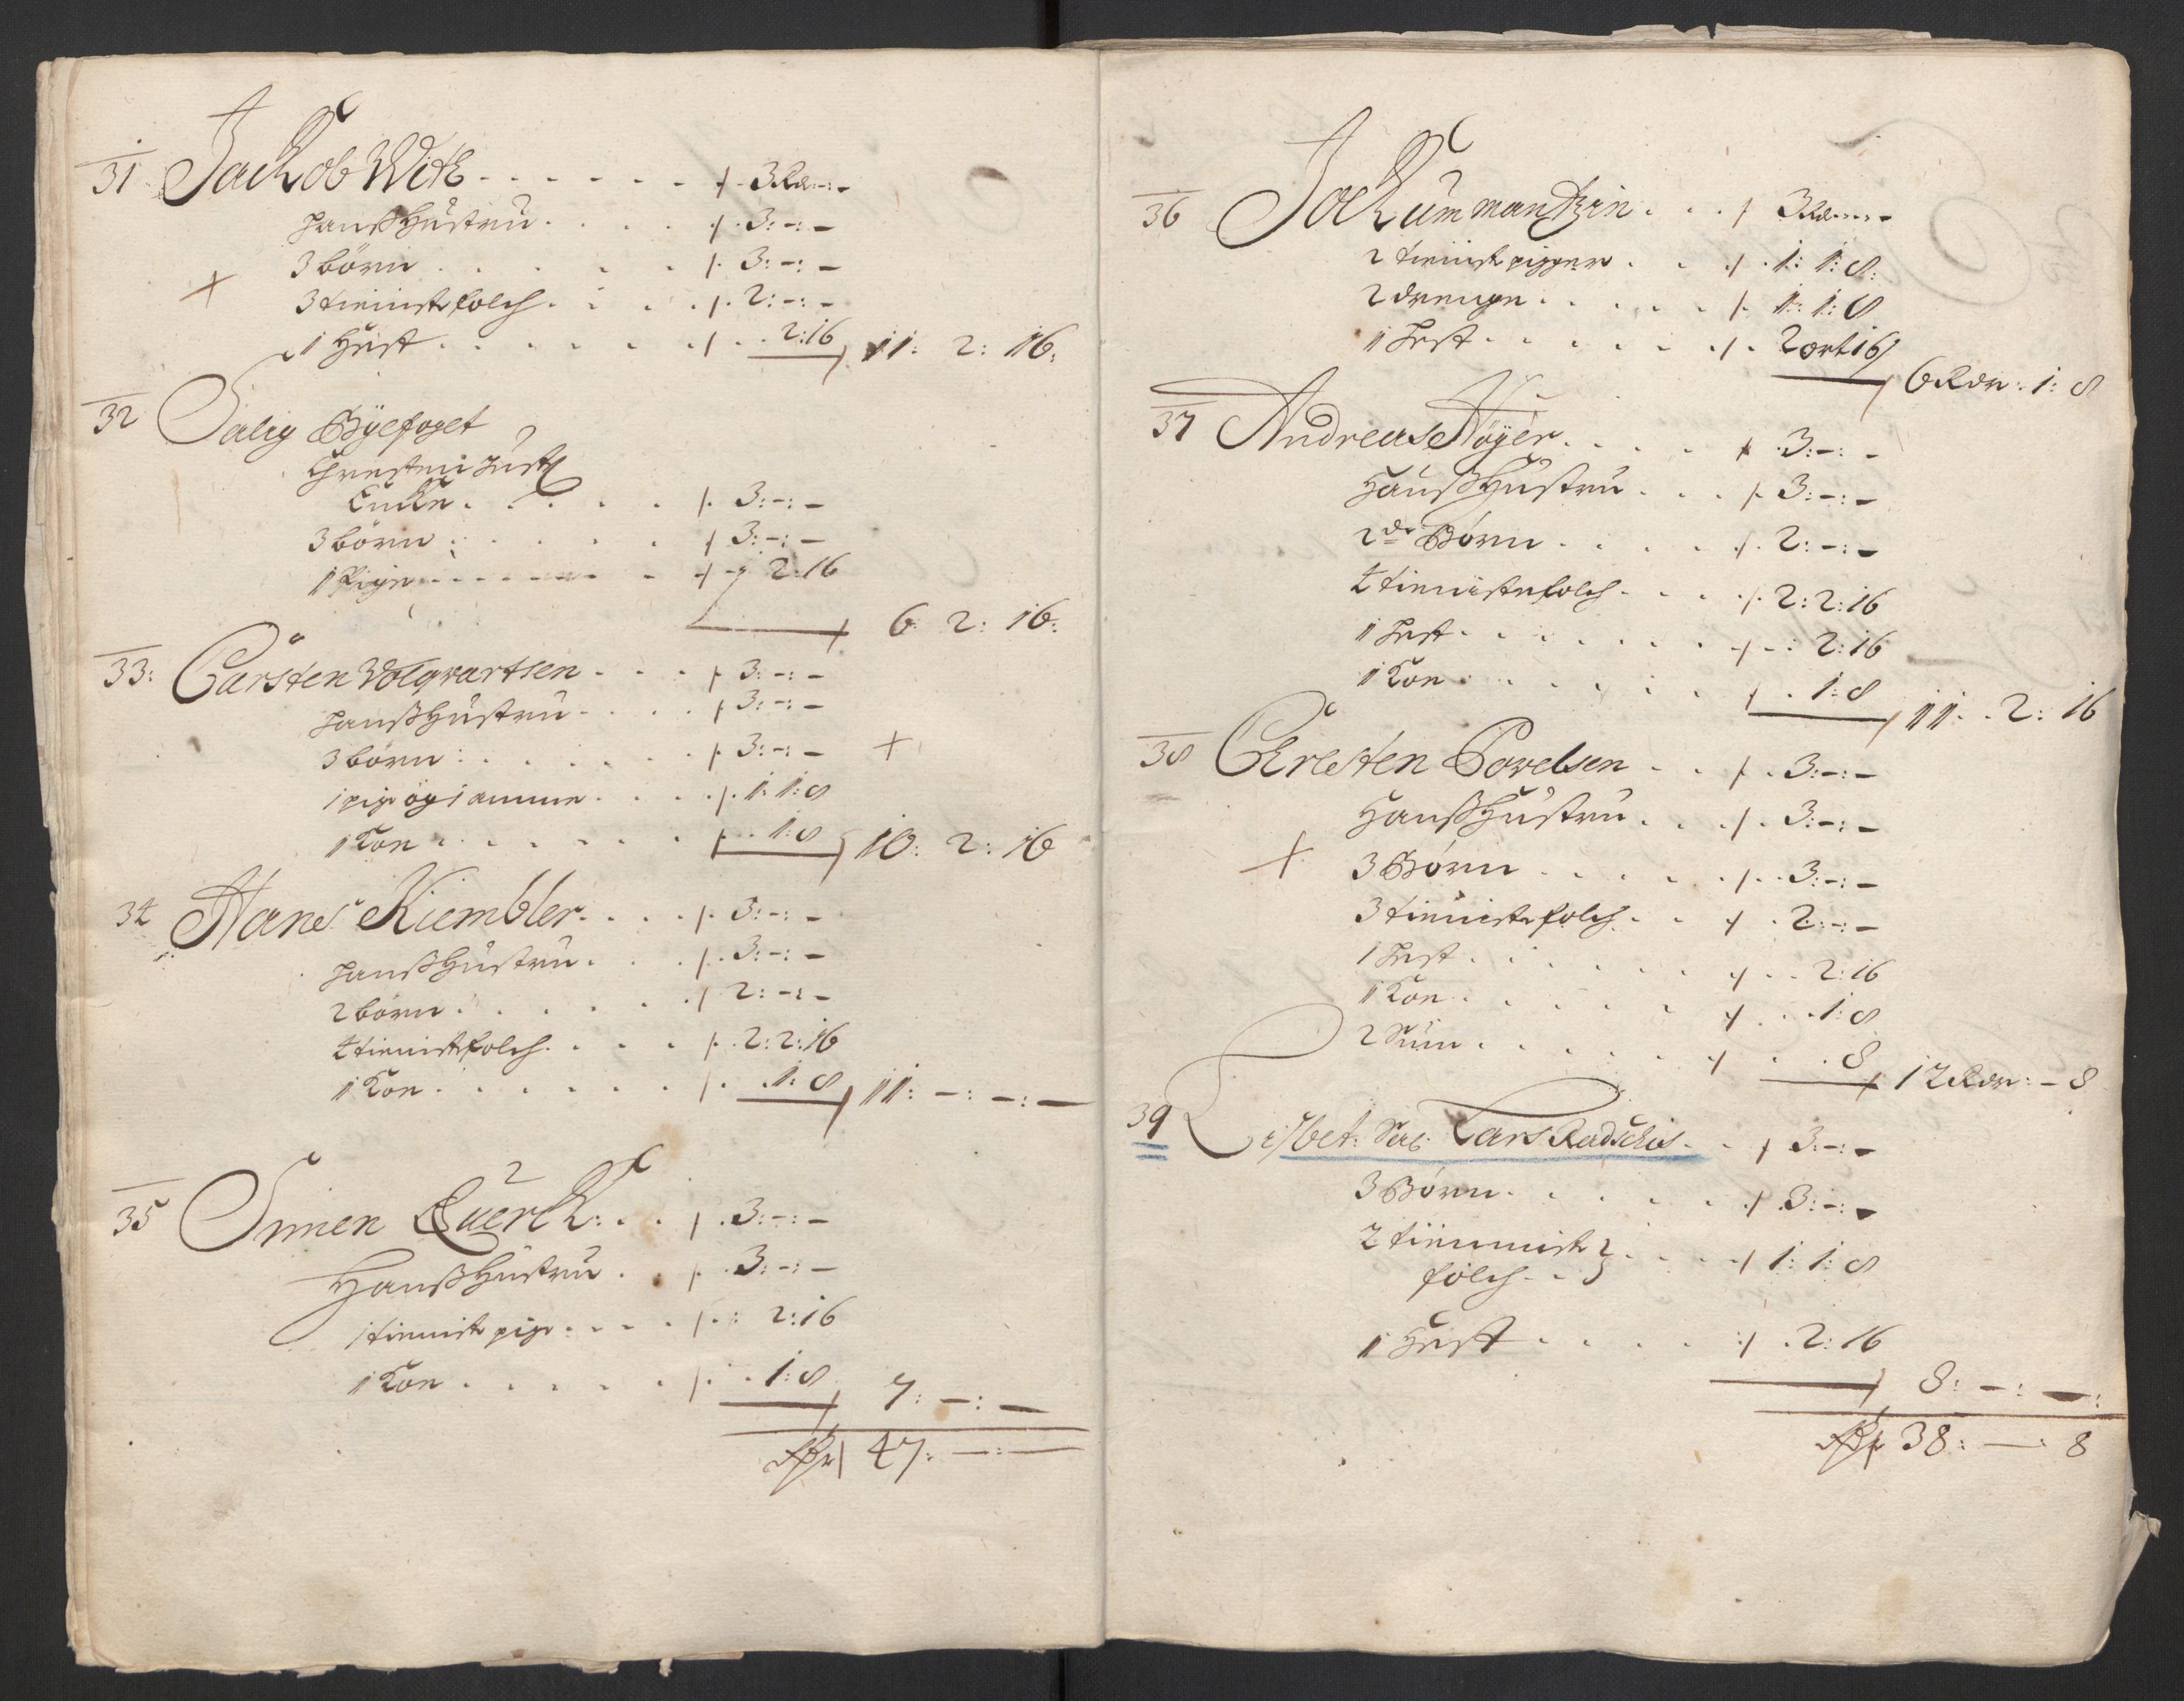 31 Jackob Witt . . . . . . 3 Rdr:-
hanß Hustru . . . . 3:-:-
3 börn . . . . . 3:-:-
+ 3 tienist folch . . . . 2:-:-
1 Hest . . . . . . 2:16 11: 2: 16:
32 Salig Byefoget
Christen Just
Encke . . . . . 3:-:-
3 börn . . . . . 3:-:-
1 Pige . . . . . 2:16
6: 2: 16:
33: Carsten Volqvartsen . . . 3:-:-
hanß Hustru . . . . 3:-:-
3 börn . . . . . . 3:-:- +
1 pige og 1 amme . . . . 1: 1:8
1 Koe . . . . . . 1:8 10: 2: 16
34 Hans Kiembler . . . . 3:-:-
hanß Hustru . . . . 3:-:-
2 börn . . . . . . 2:-:-
4 tienist folch . . . . 2:2:16
1 Koe . . . . . . 1:8 11: -:-:-
35 Simen Querck . . . 3:-:-
Hanß Hustru . . . 3:-:-
1 tienist pige . . . . : 2:16
1 Koe . . . . . . 1:8 7: -:-
47: -:-
36 Jockum Mantzin . . . 3 Rdr:-
2 tienist piger . . . 1: 1:8:
2 drenge . . . . . 1: 1:8
1 Hest . . . . . . 2 ort 16
6 Rdr: 1: 8
37 Andreas Höyer . . . . 3:-:-
Hanß Hustru . . . 3:-:-
2de Börn . . . . . 2:-:-
4 tieniste folch . . . . 2:2:16
1 Hest . . . . . . -: 2:16
1 Koe . . . . . . 1:8 11: 2: 16
38 Chresten Povelsen . . . 3:-:-
Hanß Hustru . . . . 3:-:-
+ 3 Börn . . . . . . 3:-:-
3 tienist folch . . . 2:-:-
1 Hest . . . . . . 2:16
1 Koe . . . . . . 1:8
2 Suin . . . . . . 8 12 Rdr: - 8
39 Lisbet Sal: Lars Radschis . . 3:-:-
3 Börn . . . . . . 3:-:-
2 tienniste
folch . . . . . . 1: 1: 8
1 Hest . . . . . . 2:16
8: -:-:
38: -: 8